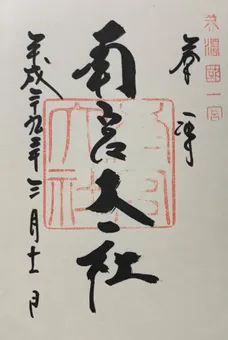 美濃國一宮
奉拝
南宮大社
平成廿九年三月十一日